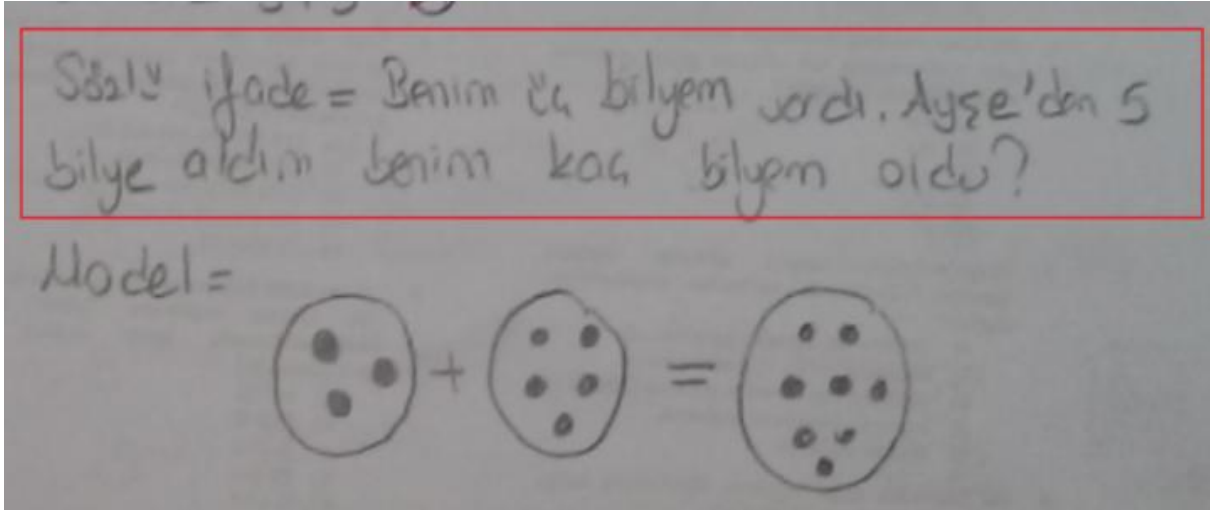 Sözlü ifade = Benim üç bilyem vardı. Ayşe'den 5
bilye aldım benim kaç bilyem oldu?
Model =
+ =